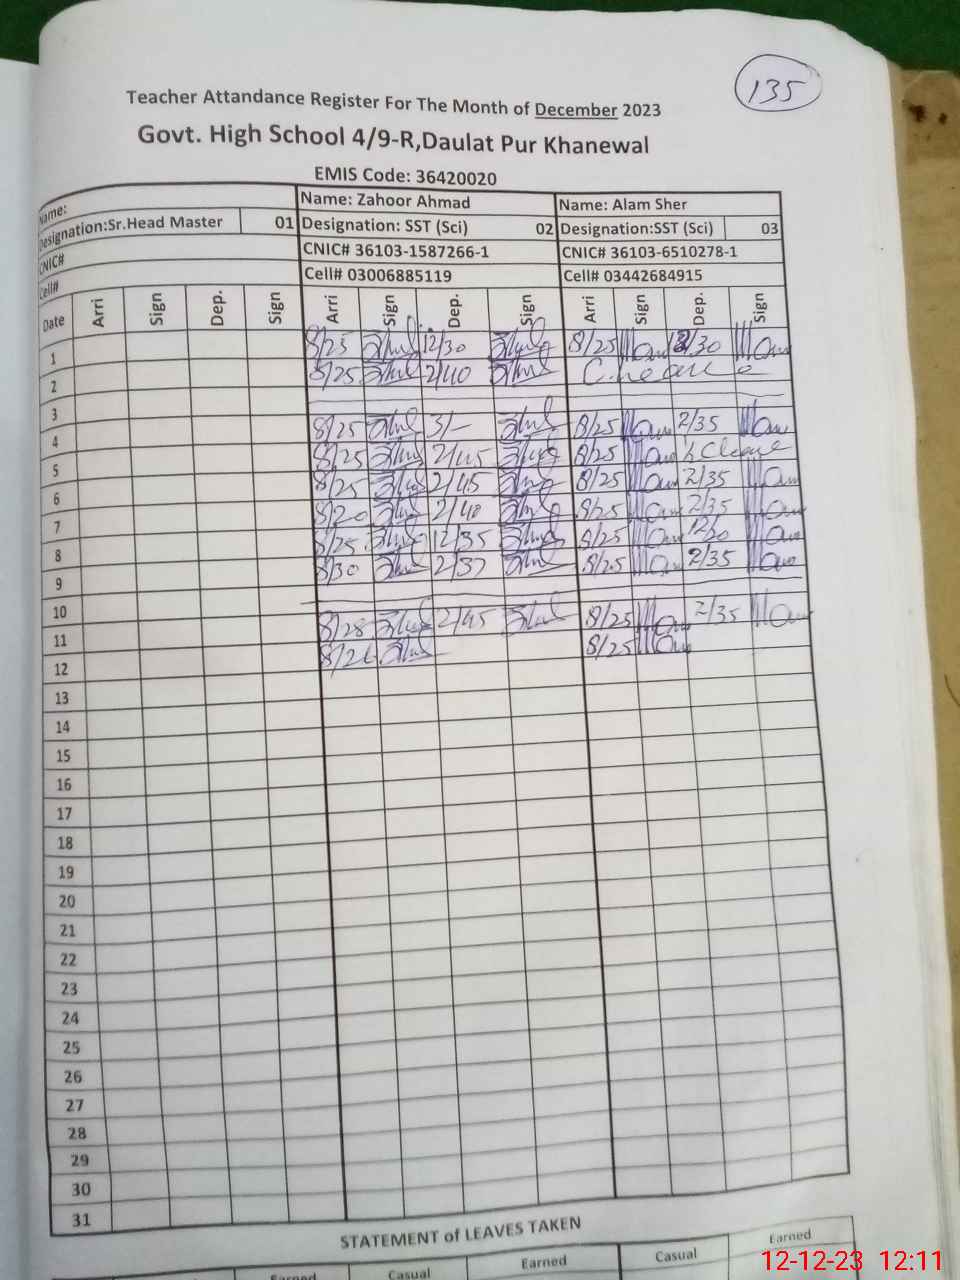 135
Teacher Attandance Register For The Month of December 2023
Govt. High School 4/9-R,Daulat Pur Khanewal
EMIS Code: 36420020
Name: Name: Zahoor Ahmad Name: Alam Sher
Designation:Sr.Head Master 01 Designation: SST (Sci) 02 Designation:SST (Sci) 03
CNIC# CNIC# 36103-1587266-1 CNIC# 36103-6510278-1
Cell# Cell# 03006885119 Cell# 03442684915
Date Arri Sign Dep. Sign Arri Sign Dep. Sign Arri Sign Dep. Sign
1 8/25 12/30 8/25 12/30
2 8/25 2/40
3
4 8/25 3/- 8/25 2/35
5 8/25 2/45 8/25
6 8/25 2/45 8/25 2/35
7 8/20 2/40 8/25 2/35
8 8/25 12/35 8/25 12/20
9 8/30 2/37 8/25 2/35
10
11 8/28 2/45 8/25 2/35
12 8/26 8/25
13
14
15
16
17
18
19
20
21
22
23
24
25
26
27
28
29
30
31
STATEMENT of LEAVES TAKEN
Earned Casual Earned Casual Earned
12-12-23 12:11